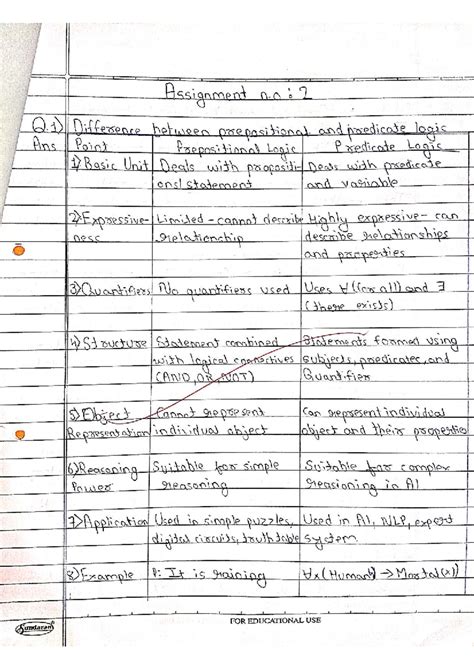 Assignment n.o : 2
Q.1) Difference between prepositional and predicate logic
Ans Point Prepositional Logic Predicate Logic
1) Basic Unit Deals with propositi- Deals with predicate
onal statement and variable
2) Expressive- Limited - cannot describe Highly expressive - can
ness relationship describe relationships
and properties
3) Quantifiers No quantifiers used Uses ∀ (for all) and ∃
(there exists)
4) Structure Statement combined Statements formed using
with logical connectives subjects, predicates, and
(AND, OR, NOT) Quantifier
5) Object Cannot represent Can represent individual
Representation individual object object and their properties
6) Reasoning Suitable for simple Suitable for complex
Power reasoning reasioning in AI
7) Application Used in simple puzzles, Used in AI, NLP, expert
digital circuits, truth table system.
8) Example P: It is raining ∀x (Human() → Mortal(x))
FOR EDUCATIONAL USE
Sundaram